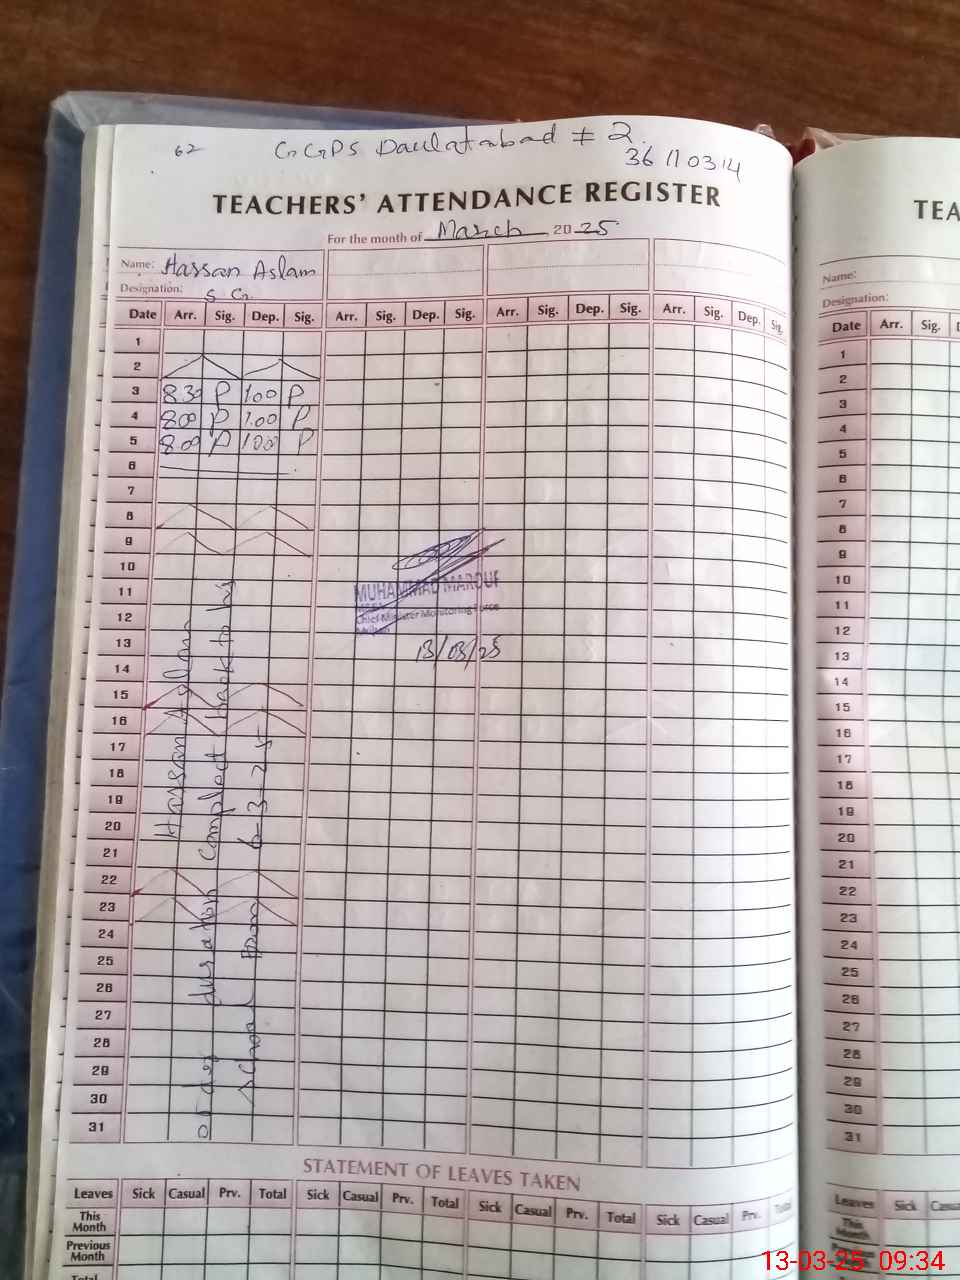 62 GGPS Daulatabad # 2.
36110314
TEACHERS' ATTENDANCE REGISTER
For the month of March 2025
Name: Hassan Aslam
Designation: S.G.
Date Arr. Sig. Dep. Sig. Arr. Sig. Dep. Sig. Arr. Sig. Dep. Sig. Arr. Sig. Dep. Sig.
1
2
3 830 P 1.00 P
4 800 P 1.00 P
5 800 P 100 P
6
7
8
9
10
11
12
13
14
15
16
17
18
19
20
21
22
23
24
25
26
27
28
29
30
31
Hassan Aslam
order duration complect back to his
school from 6-3-25
MUHAMMAD MAROUF
Chief Minister Monitoring Force
13/03/25
STATEMENT OF LEAVES TAKEN
Leaves Sick Casual Prv. Total Sick Casual Prv. Total Sick Casual Prv. Total Sick Casual Prv.
This Month
Previous Month
Total
TEA
Name:
Designation:
Date Arr. Sig.
1
2
3
4
5
6
7
8
9
10
11
12
13
14
15
16
17
18
19
20
21
22
23
24
25
26
27
28
29
30
31
Leaves Sick
This Month
13-03-25 09:34